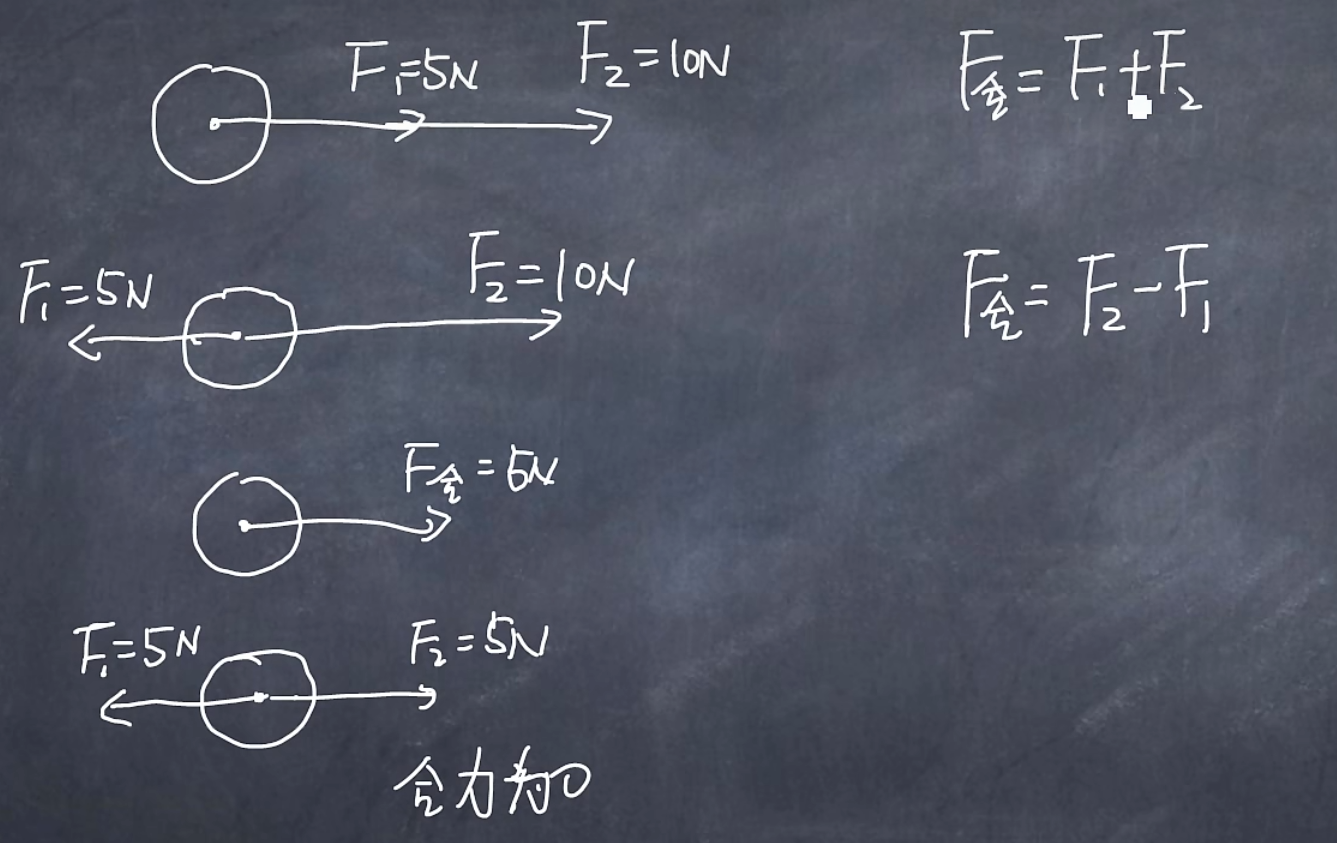 F₁=5N F₂=10N F合=F₁+F₂
F₁=5N F₂=10N F合=F₂-F₁
F合=5N
F₁=5N F₂=5N
合力为0